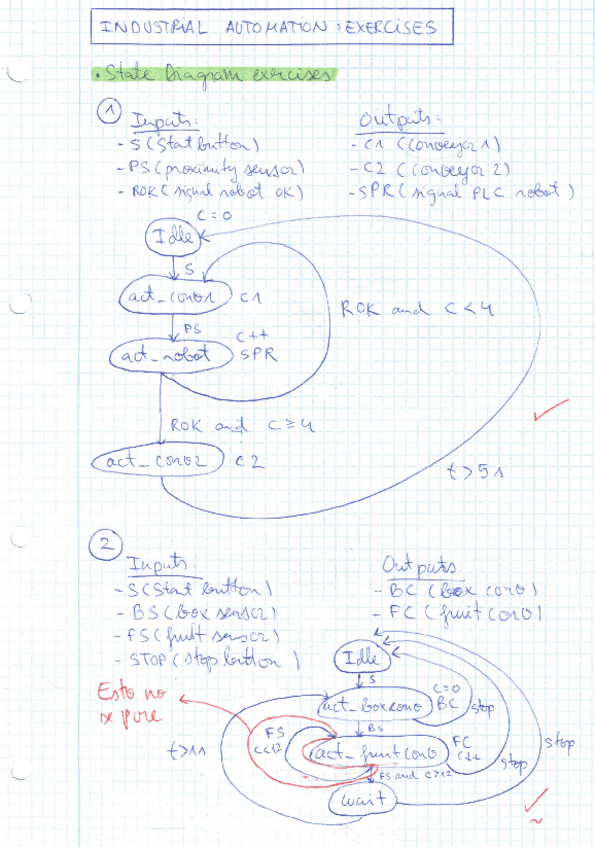 INDUSTRIAL AUTOMATION: EXERCISES
• State Diagram exercises
1
Inputs:
- S (Start button)
- PS (proximity sensor)
- ROK (signal robot OK)
Outputs:
- C1 (conveyor 1)
- C2 (conveyor 2)
- SPR (signal PLC robot)
C = 0
Idle
S
act_conv1 C1
PS
C++
act_robot SPR
ROK and C < 4
ROK and C ≥ 4
act_conv2 C2
t > 5s
2
Inputs:
- S (Start button)
- BS (box sensor)
- FS (fruit sensor)
- STOP (stop button)
Outputs
- BC (box conv)
- FC (fruit conv)
Idle
S
C=0
act_boxconv BC stop
BS
Esto no
se pone
FS
C<12
act_fruitconv FC
C++
stop
stop
t>1s
FS and C≥12
wait